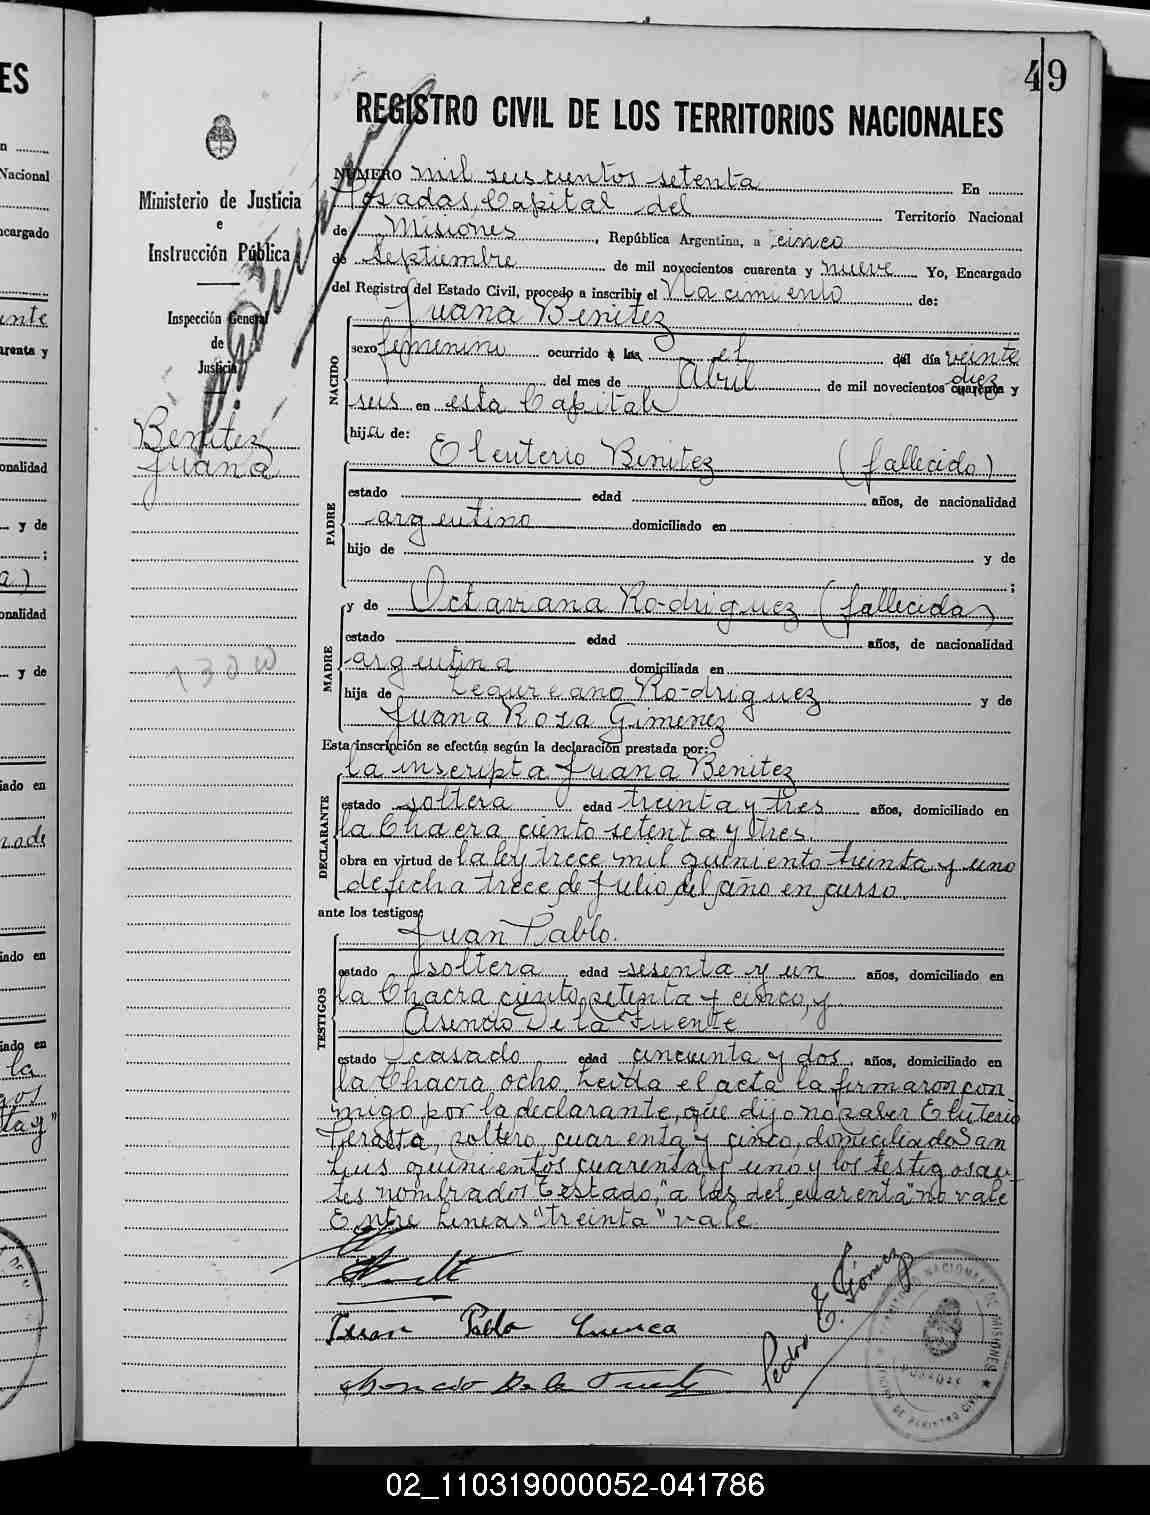 49
REGISTRO CIVIL DE LOS TERRITORIOS NACIONALES
Ministerio de Justicia
e
Instrucción Pública
Inspección General
de
Justicia
Benitez
Juana
NÚMERO mil seiscientos setenta En
Posadas, Capital del Territorio Nacional
de Misiones, República Argentina, a cinco
de Septiembre de mil novecientos cuarenta y nueve Yo, Encargado
del Registro del Estado Civil, procedo a inscribir el Nacimiento de:
NACIDO
Juana Benitez
sexo femenino ocurrido a las el del día veinte
del mes de Abril de mil novecientos cuarenta y
diez
seis en esta Capital
hija de:
PADRE
Eleuterio Benitez (fallecido)
estado edad años, de nacionalidad
argentino domiciliado en
hijo de y de
;
MADRE
y de Octaviana Rodriguez (fallecida)
estado edad años, de nacionalidad
argentina domiciliada en
hija de Rodriguez y de
Juana Rosa Gimenez
Esta inscripción se efectúa según la declaración prestada por:
DECLARANTE
la inscripta Juana Benitez
estado soltera edad treinta y tres años, domiciliado en
la Chacra ciento setenta y tres.
obra en virtud de la ley trece mil quiniento treinta y uno
de fecha trece de Julio del año en curso.
ante los testigos:
TESTIGOS
Juan Pablo.
estado soltera edad sesenta y un años, domiciliado en
la Chacra ciento setenta y cinco, y
Asencio De la Fuente
estado casado edad cincuenta y dos, años, domiciliado en
la Chacra ocho. Leida el acta la firmaron con
migo por la declarante, que dijo no saber Eluterio
Peralta, soltero, cuarenta y cinco, domiciliado San
Luis quinientos cuarenta y uno y los testigos an-
tes nombrados Testado, "a las del, cuarenta" no vale
Entre Lineas "treinta" vale.
Juan Pablo Cuenca
Asencio De la Fuente
Pedro E. Gómez
02_110319000052-041786